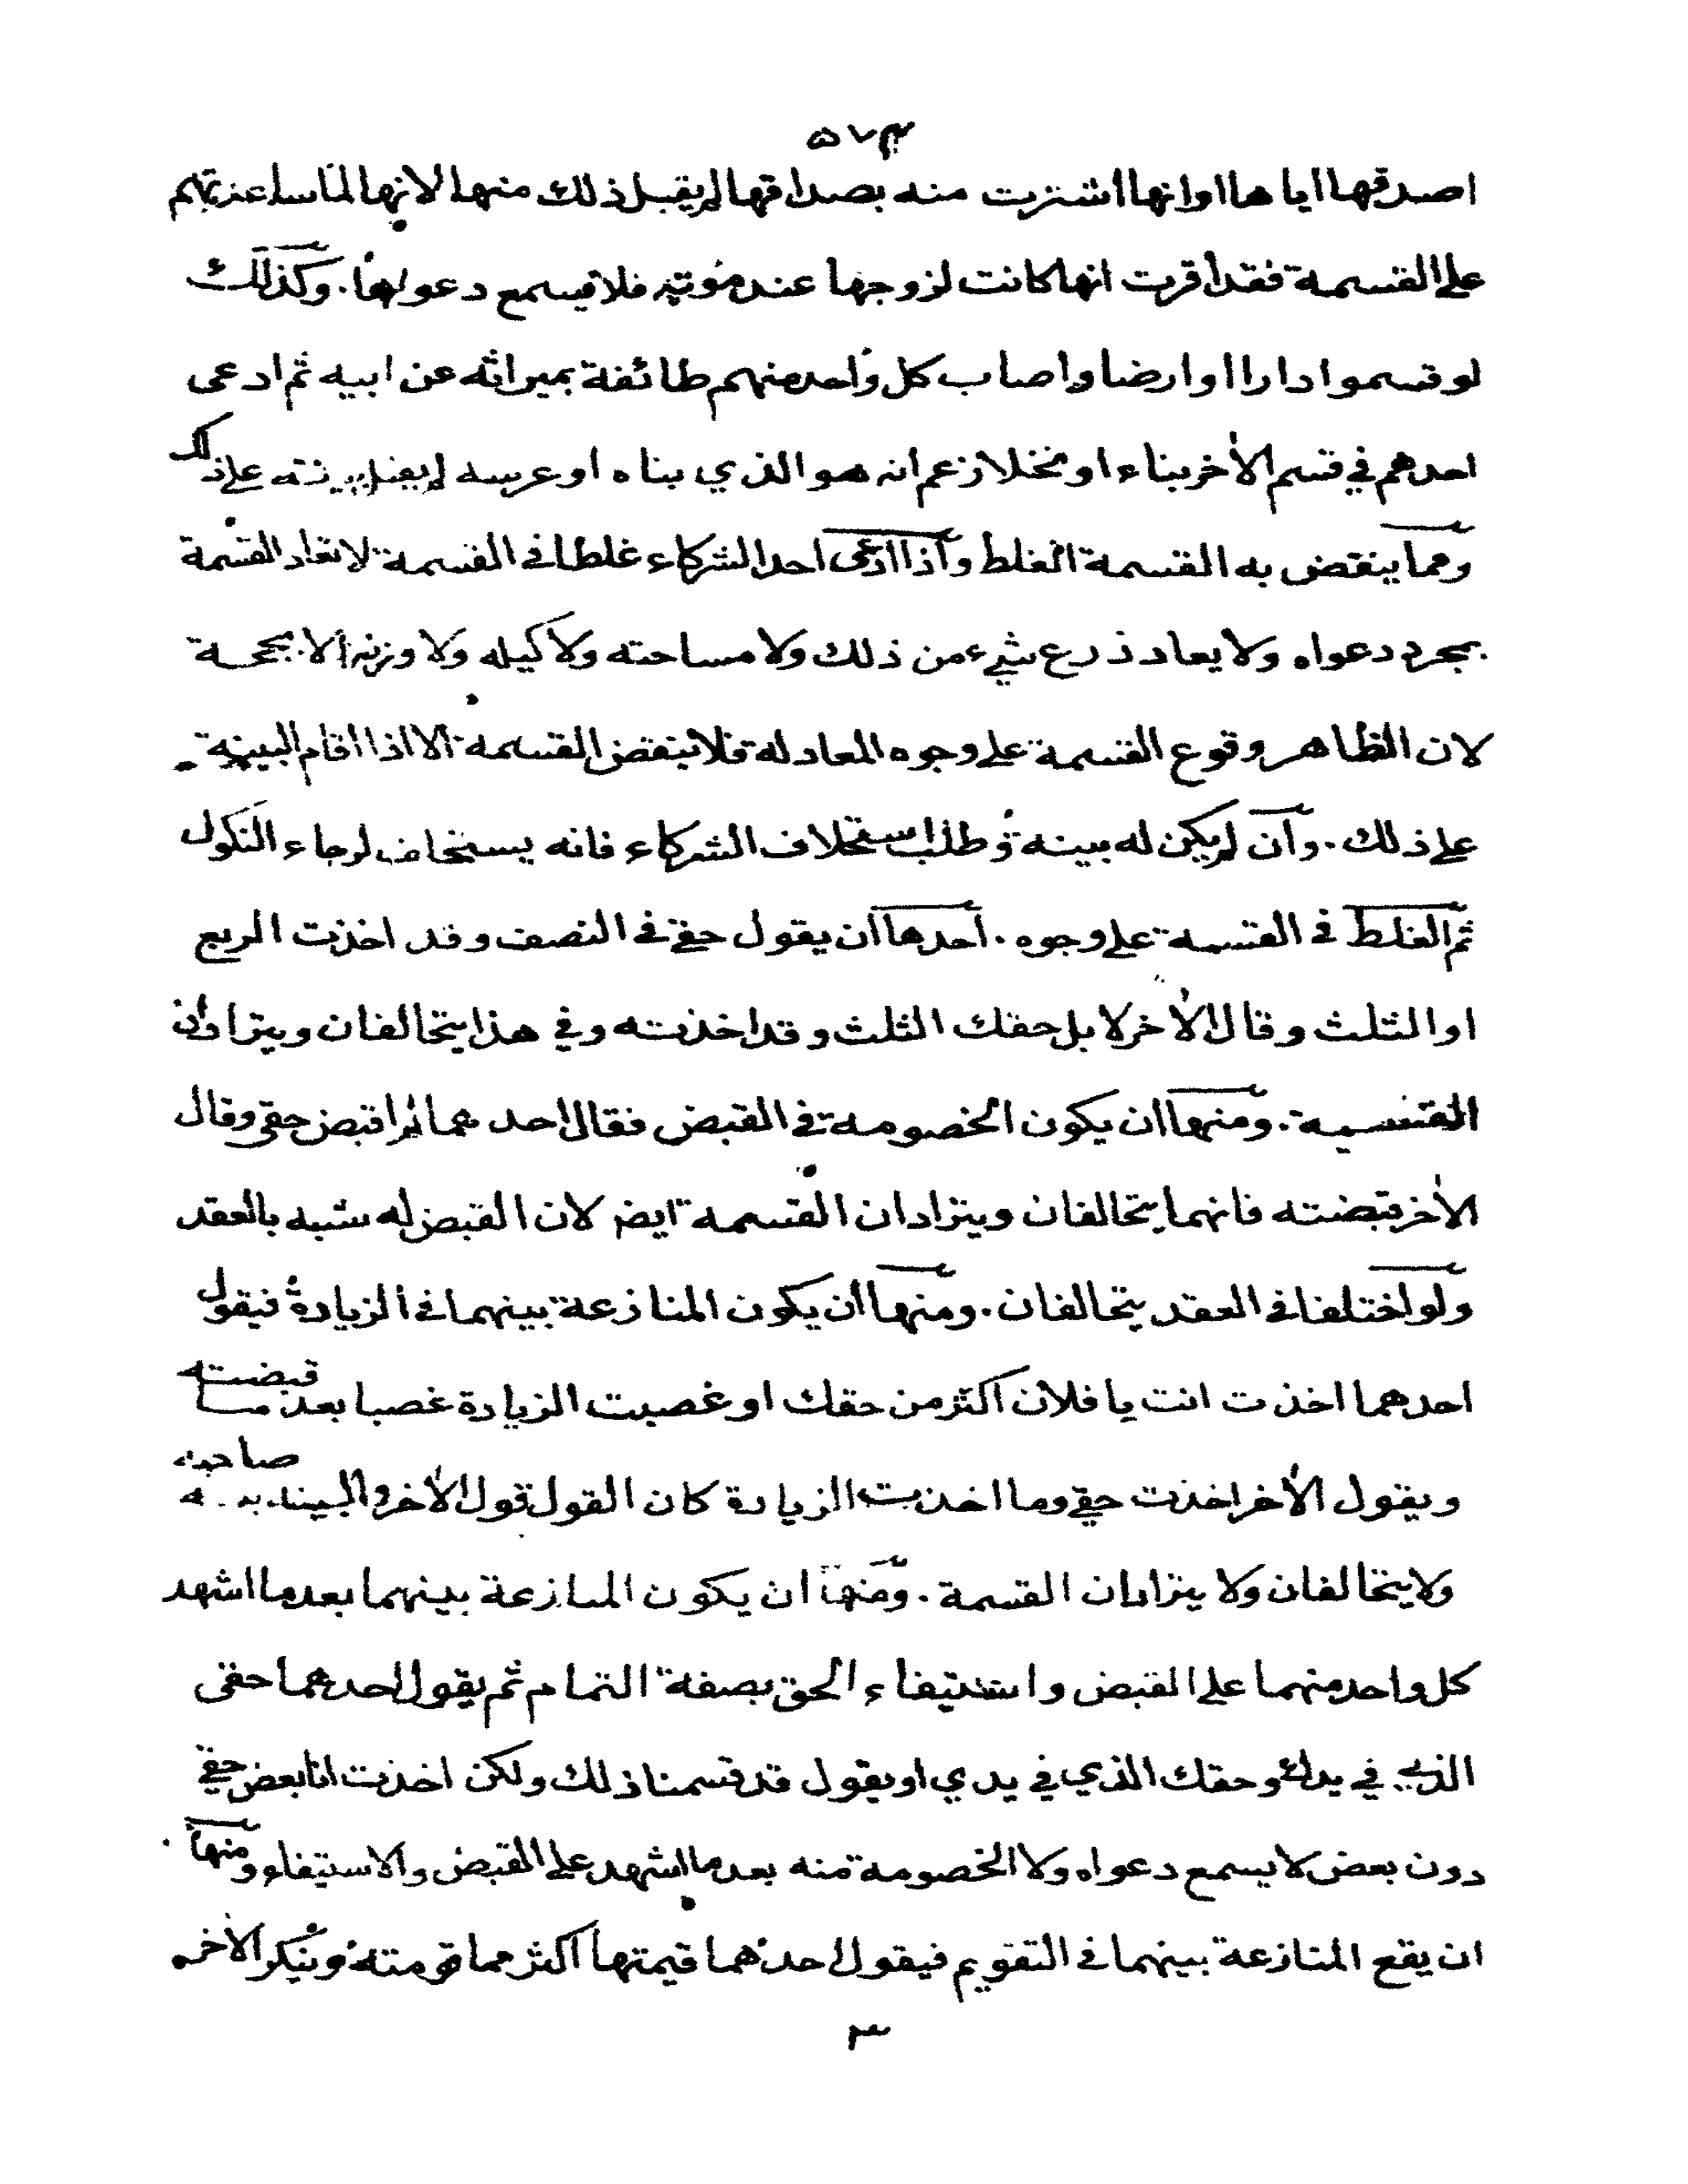 ٥٧٣
اصدقها اياها او انها اشترت منه بصداقها لم يقبل ذلك منها لانها لما ساعدتهم
على القسمة فقد اقرت انها كانت لزوجها عند موته فلا يسمع دعواها. وكذلك
لو قسموا دارا او ارضا واصاب كل واحد منهم طائفة بميراثه عن ابيه ثم ادعى
احدهم في قسم الأخر بناء او نخلا زعم انه هو الذي بناه او غرسه لم يقبل بينته على ذلك
ومما ينقض به القسمة الغلط واذا ادعى احد الشركاء غلطا في القسمة لا تعاد القسمة
بمجرد دعواه ولا يعاد ذرع شيء من ذلك ولا مساحته ولا كيله ولا وزنه الا بحجة
لان الظاهر وقوع القسمة على وجوه المعادلة فلا ينقض القسمة الا اذا اقام البينة
على ذلك. وان لم يكن له بينة وطلب استحلاف الشركاء فانه يستحلف لرجاء النكول
ثم الغلط في القسمة على وجوه. احدها ان يقول حقي في النصف وقد اخذت الربع
او الثلث وقال الأخر لا بل حقك الثلث وقد اخذته وفي هذا يتحالفان ويترادان
القسمة. ومنها ان يكون الخصومة في القبض فقال احدهما لم اقبض حقي وقال
الأخر قبضته فانهما يتحالفان ويترادان القسمة ايضا لان القبض له شبه بالعقد
ولو اختلفا في العقد يتحالفان. ومنها ان يكون المنازعة بينهما في الزيادة فيقول
احدهما اخذت انت يا فلان اكثر من حقك او غصبت الزيادة غصبا بعد ما قبضته
ويقول الأخر اخذت حقي وما اخذت الزيادة كان القول قول الأخر والبينة صاحبه
ولا يتحالفان ولا يترادان القسمة. ومنها ان يكون المنازعة بينهما بعد ما اشهد
كل واحد منهما على القبض واستيفاء الحق بصفة التمام ثم يقول احدهما حقي
الذي في يدك وحقك الذي في يدي او يقول قد قسمنا ذلك ولكن اخذت انا بعض حقي
دون بعض لا يسمع دعواه ولا الخصومة منه بعد ما اشهد على القبض والاستيفاء ومنها
ان يقع المنازعة بينهما في التقويم فيقول احدهما قيمتها اكثر مما قومته وينكر الأخر